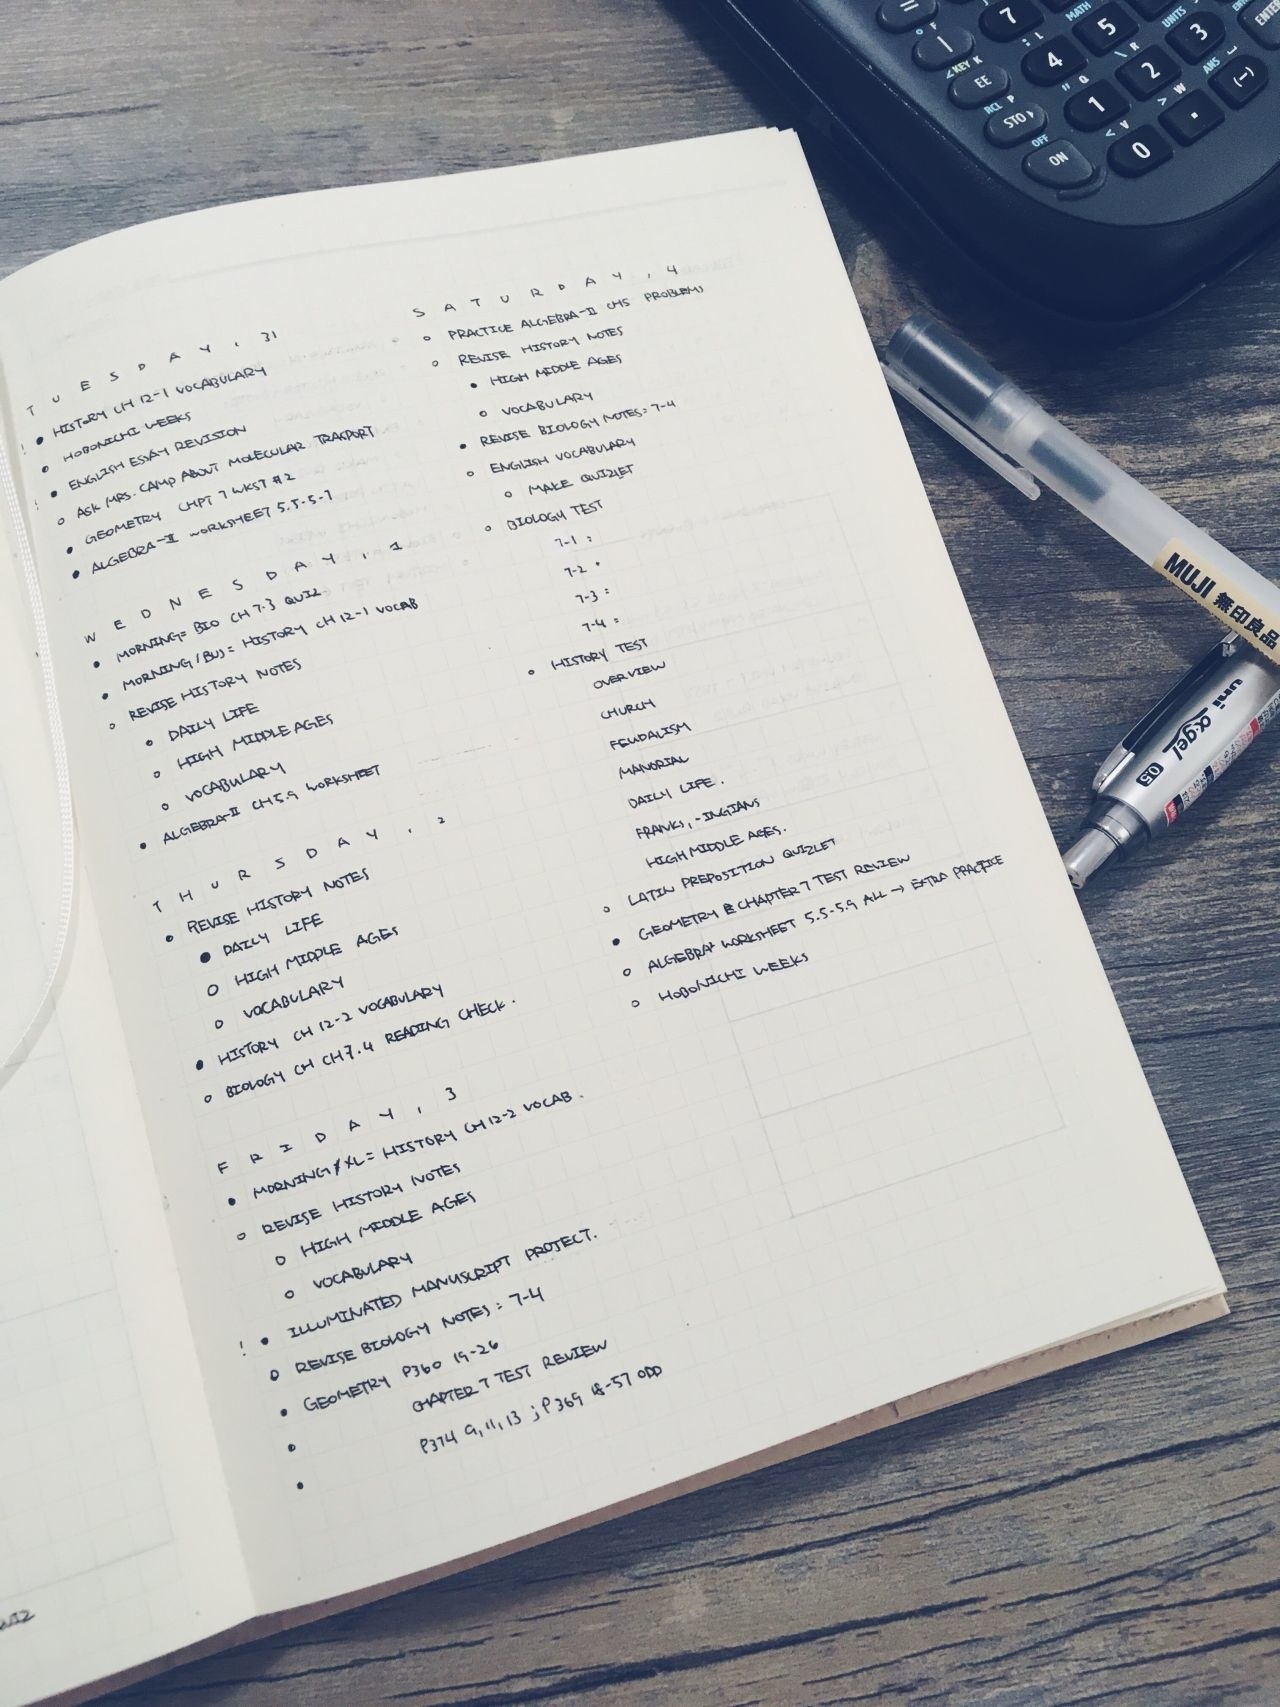 TUESDAY, 31
! • HISTORY CH 12-1 VOCABULARY
• HOBONICHI WEEKS
! • ENGLISH ESSAY REVISION
○ ASK MRS. CAMP ABOUT MOLECULAR TRAKPORT
• GEOMETRY CHPT 7 WKST #2
• ALGEBRA-II WORKSHEET 5.5-5-7
WEDNESDAY, 1
• MORNING= BIO CH 7.3 QUIZ
• MORNING/BUS= HISTORY CH 12-1 VOCAB
○ REVISE HISTORY NOTES
• DAILY LIFE
○ HIGH MIDDLE AGES
○ VOCABULARY
• ALGEBRA-II CH 5.9 WORKSHEET
THURSDAY, 2
• REVISE HISTORY NOTES
• DAILY LIFE
○ HIGH MIDDLE AGES
○ VOCABULARY
• HISTORY CH 12-2 VOCABULARY
○ BIOLOGY CH CH7.4 READING CHECK.
FRIDAY, 3
• MORNING/XL= HISTORY CH 12-2 VOCAB.
○ REVISE HISTORY NOTES
○ HIGH MIDDLE AGES
○ VOCABULARY
! • ILLUMINATED MANUSCRIPT PROJECT.
○ REVISE BIOLOGY NOTES: 7-4
• GEOMETRY P360 19-26
• CHAPTER 7 TEST REVIEW
• P374 9, 11, 13 ; P369 18-57 ODD
SATURDAY, 4
○ PRACTICE ALGEBRA-II CH5 PROBLEMS
○ REVISE HISTORY NOTES
• HIGH MIDDLE AGES
○ VOCABULARY
• REVISE BIOLOGY NOTES: 7-4
○ ENGLISH VOCABULARY
○ MAKE QUIZLET
○ BIOLOGY TEST
7-1 :
7-2 •
7-3 :
7-4 :
○ HISTORY TEST
OVERVIEW
CHURCH
FEUDALISM
MANORIAL
DAILY LIFE.
FRANKS, -INGIANS
HIGH MIDDLE AGES.
○ LATIN PREPOSITION QUIZLET
• GEOMETRY CHAPTER 7 TEST REVIEW
○ ALGEBRA WORKSHEET 5.5-5.9 ALL → EXTRA PRACTICE
○ HOBONICHI WEEKS
= 7 5 3 ENTER
MATH UNITS
EE 4 2 (-)
KEY K ANS
STO▸ 1 .
RCL P
ON 0
OFF
MUJI 無印良品
uni α·gel
0.5